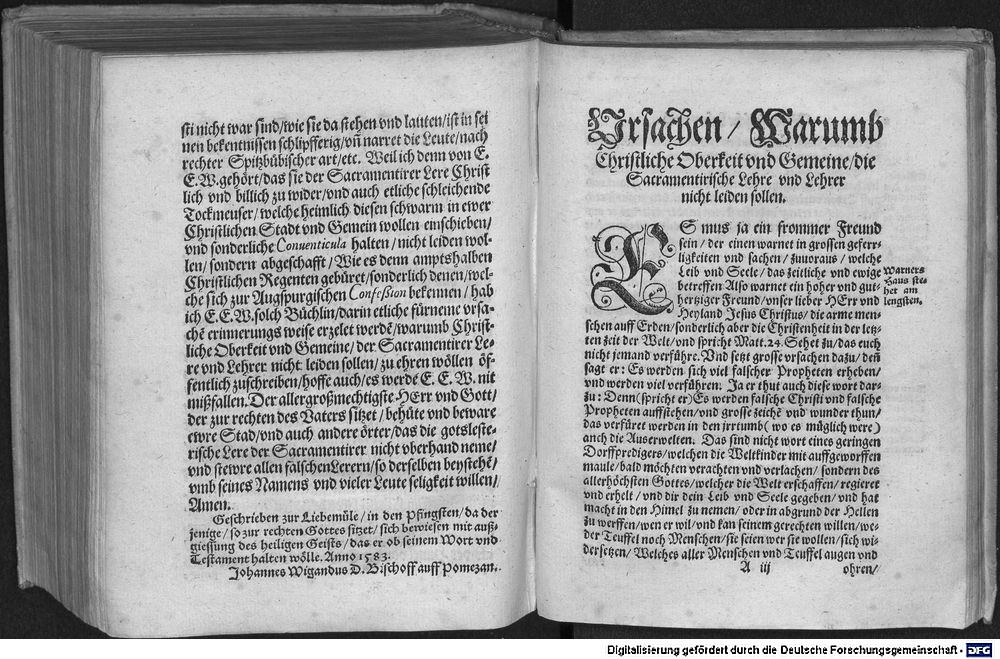 sti nicht war sind/wie sie da stehen vnd lauten/ist in sei
nen bekentnissen schlipfferig/vñ narret die Leute/nach
rechter Spitzbübischer art/etc. Weil ich denn von E.
E. W. gehört/das sie der Sacramentirer Lere Christ
lich vnd billich zu wider/vnd auch etliche schleichende
Tockmeuser/welche heimlich diesen schwarm in ewer
Christlichen Stadt vnd Gemein wollen einschieben/
vnd sonderliche Conuenticula halten/nicht leiden wol-
len/sondern abgeschafft/Wie es denn amptshalben
Christlichen Regenten gebüret/sonderlich denen/wel-
che sich zur Augspurgischen Confeßion bekennen/hab
ich E. E. W. solch Büchlin/darin etliche fürneme vrsa-
chẽ erinnerungs weise erzelet werdẽ/warumb Christ-
liche Oberkeit vnd Gemeine/der Sacramentirer Le-
re vnd Lehrer nicht leiden sollen/zu ehren wöllen öf-
fentlich zuschreiben/hoffe auch/es werde E. E. W. nit
mißfallen. Der allergroßmechtigste HErr vnd Gott/
der zur rechten des Vaters sitzet/behüte vnd beware
ewre Stad/vnd auch andere örter/das die gotsleste-
rische Lere der Sacramentirer nicht vberhand neme/
vnd stewre allen falschen Lerern/so derselben beystehẽ/
vmb seines Namens vnd vieler Leute seligkeit willen/
Amen.
Geschrieben zur Liebemüle/in den Pfingsten/da der
jenige/so zur rechten Gottes sitzet/sich bewiesen mit auß-
giessung des heiligen Geists/das er ob seinem Wort vnd
Testament halten wölle. Anno 1583.
Johannes Wigandus D. Bischoff auff Pomezan.
Vrsachen/Warumb
Christliche Oberkeit vnd Gemeine/die
Sacramentirische Lehre vnd Lehrer
nicht leiden sollen.
ES mus ja ein frommer Freund
sein/der einen warnet in grossen geferr-
ligkeiten vnd sachen/zuuoraus/welche
Leib vnd Seele/das zeitliche vnd ewige
betreffen Also warnet ein hoher vnd gut-
hertziger Freund/vnser lieber HErr vnd
Heyland Jesus Christus/die arme men-
schen auff Erden/sonderlich aber die Christenheit in der letz-
ten zeit der Welt/vnd spricht Matt. 24. Sehet zu/das euch
nicht jemand verführe. Vnd setzt grosse vrsachen dazu/deñ
sagt er: Es werden sich viel falscher Propheten erheben/
vnd werden viel verführen. Ja er thut auch diese wort dar-
zu: Denn (spricht er) Es werden falsche Christi vnd falsche
Propheten auffstehen/vnd grosse zeichẽ vnd wunder thun/
das verfüret werden in den jrrtumb (wo es müglich were)
auch die Auserwelten. Das sind nicht wort eines geringen
Dorffpredigers/welchen die Weltkinder mit auffgeworffen
maule/bald möchten verachten vnd verlachen/sondern des
allerhöchsten Gottes/welcher die Welt erschaffen/regieret
vnd erhelt/vnd dir dein Leib vnd Seele gegeben/vnd hat
macht in den Himel zu nemen/oder in abgrund der Hellen
zu werffen/wen er wil/vnd kan seinem gerechten willen/we-
der Teuffel noch Menschen/sie seien wer sie wollen/sich wi-
dersetzen/Welches aller Menschen vnd Teuffel augen vnd
A iij ohren/
Warners
Haus ste-
het am
lengsten.
Digitalisierung gefördert durch die Deutsche Forschungsgemeinschaft - DFG